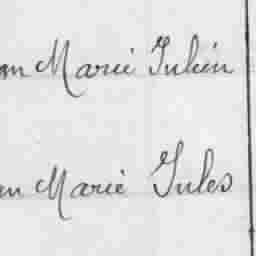 an Marie Julien
an Marie Jules